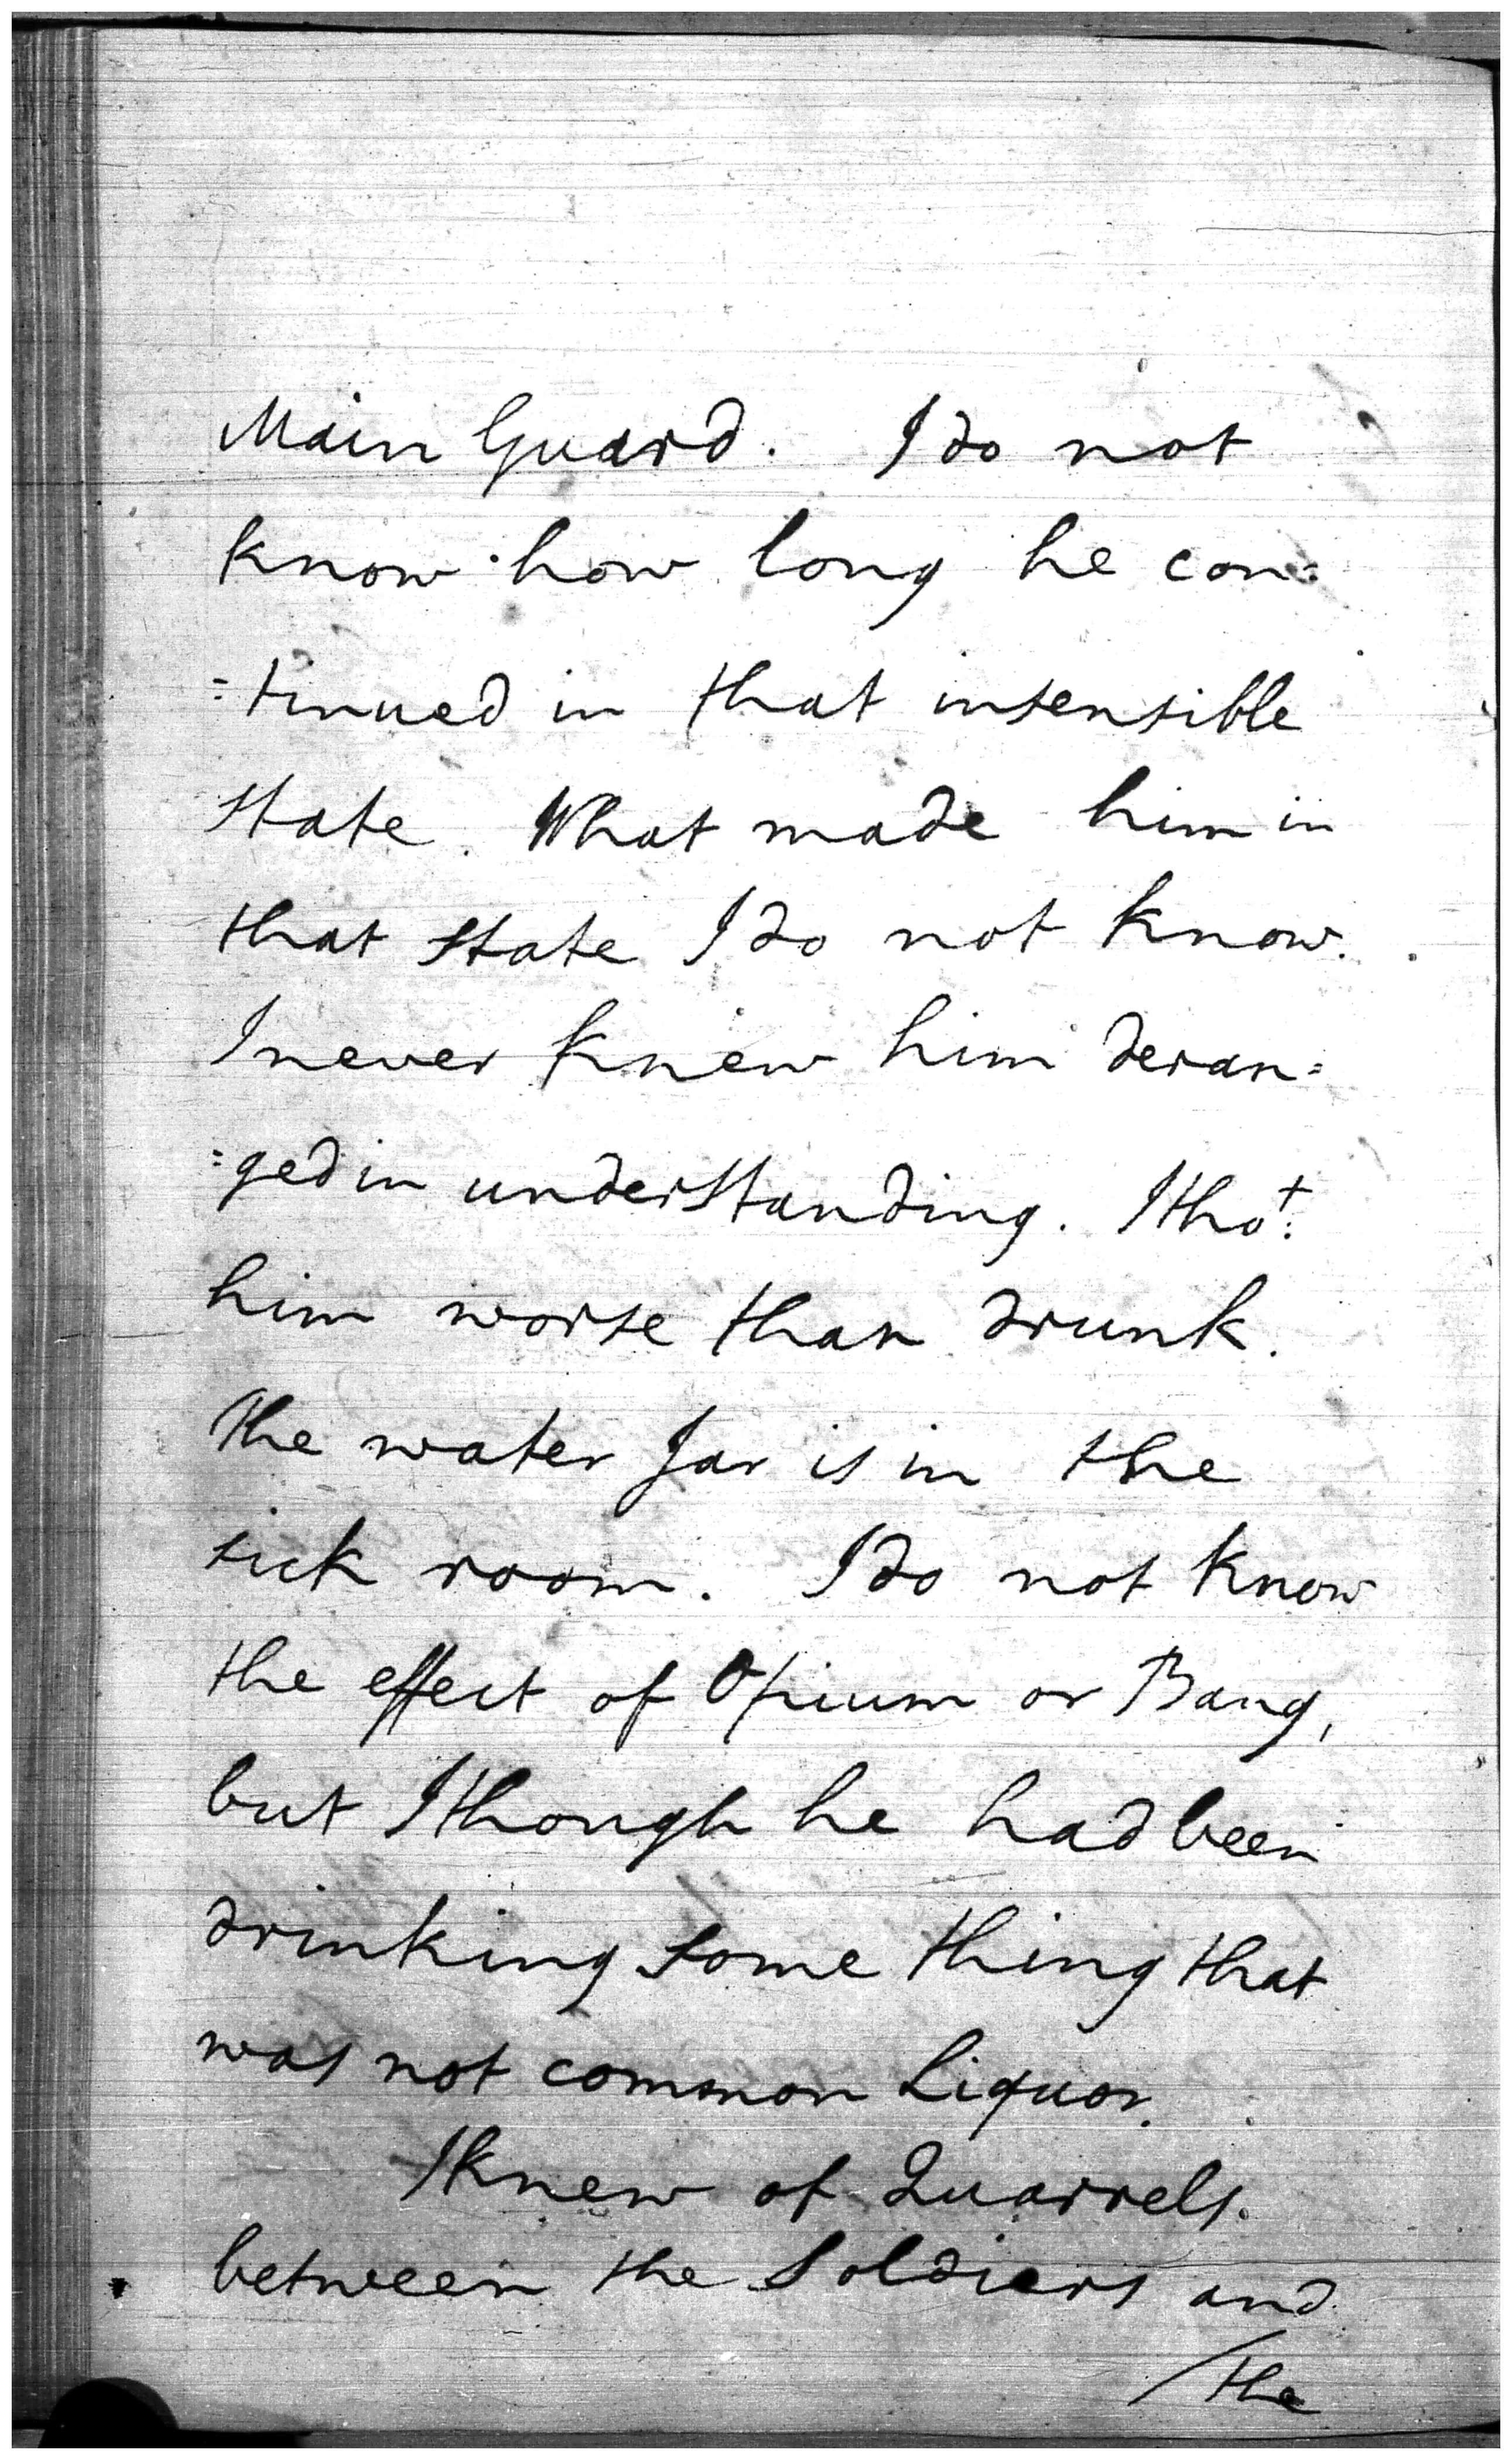 Main Guard. I do not
know how long he con=
=tinued in that insensible
state. What made him in
that state I do not know.
I never knew him deran=
=ged in understanding. I tho.t
him worse than drunk.
The water Jar is in the
sick room. I do not know
the effect of Opium or Bang,
but I though he had been
drinking some thing that
was not common Liquor.
I knew of Quarrels
between the Soldiers and
/the